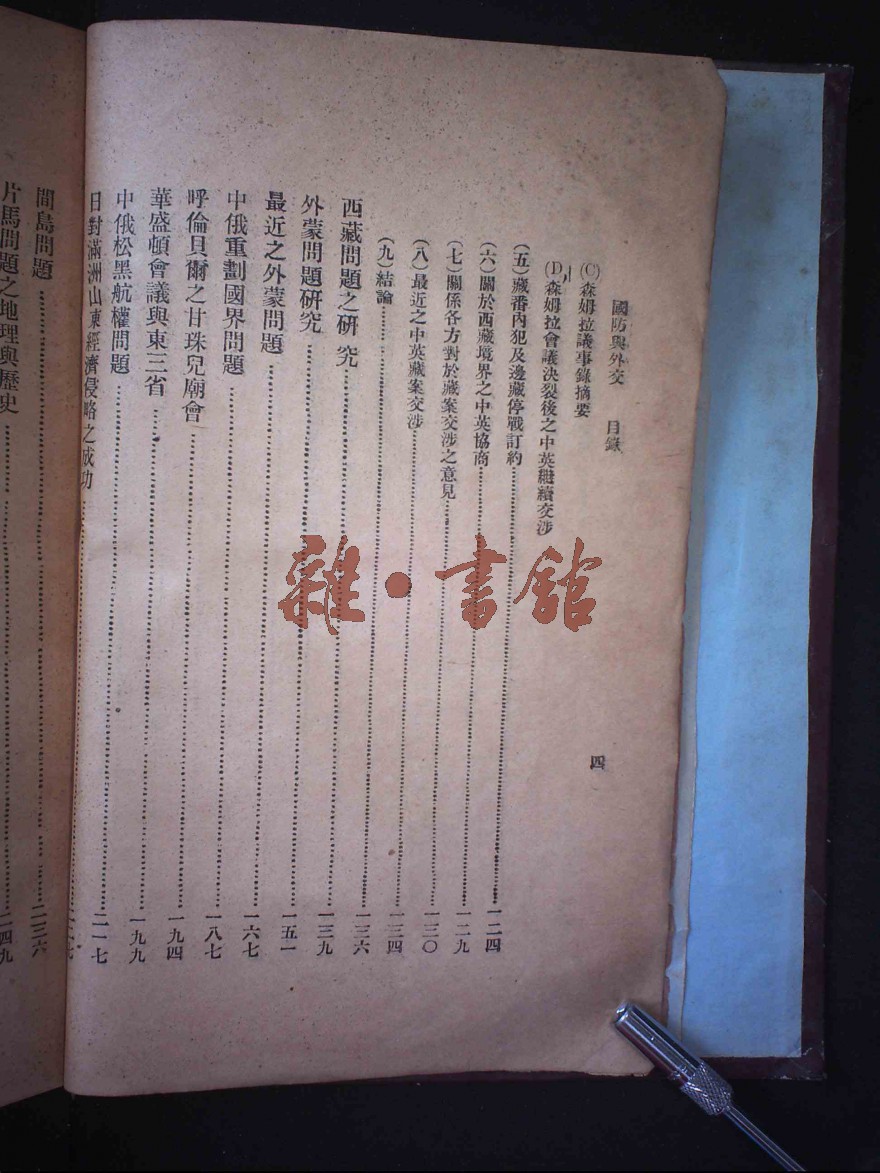 國防與外交 目錄 四
(C)森姆拉議事錄摘要
(D)森姆拉會議決裂後之中英繼續交涉
(五)藏番內犯及邊藏停戰訂約……一二四
(六)關於西藏境界之中英協商……一二九
(七)關係各方對於藏案交涉之意見……一三〇
(八)最近之中英藏案交涉……一三四
(九)結論……一三六
西藏問題之研究……一三九
外蒙問題研究……一五一
最近之外蒙問題……一六七
中俄重劃國界問題……一八七
呼倫貝爾之甘珠兒廟會……一九四
華盛頓會議與東三省……一九九
中俄松黑航權問題……二一七
日對滿洲山東經濟侵略之成功……二二七
間島問題……二三六
片馬問題之地理與歷史……二四九
雜·書館